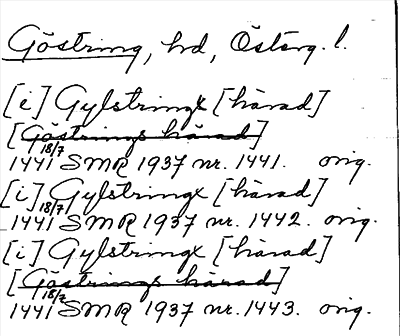 Göstring, hd, Österg. l.
[i] Gylstringx [härad]
[Göstrings härad]
1441 18/7 SMR 1937 nr. 1441. orig.
[i] Gylstringx [härad]
1441 18/7 SMR 1937 nr. 1442. orig.
[i] Gylstringx [härad]
[Göstrings härad]
1441 18/7 SMR 1937 nr. 1443. orig.